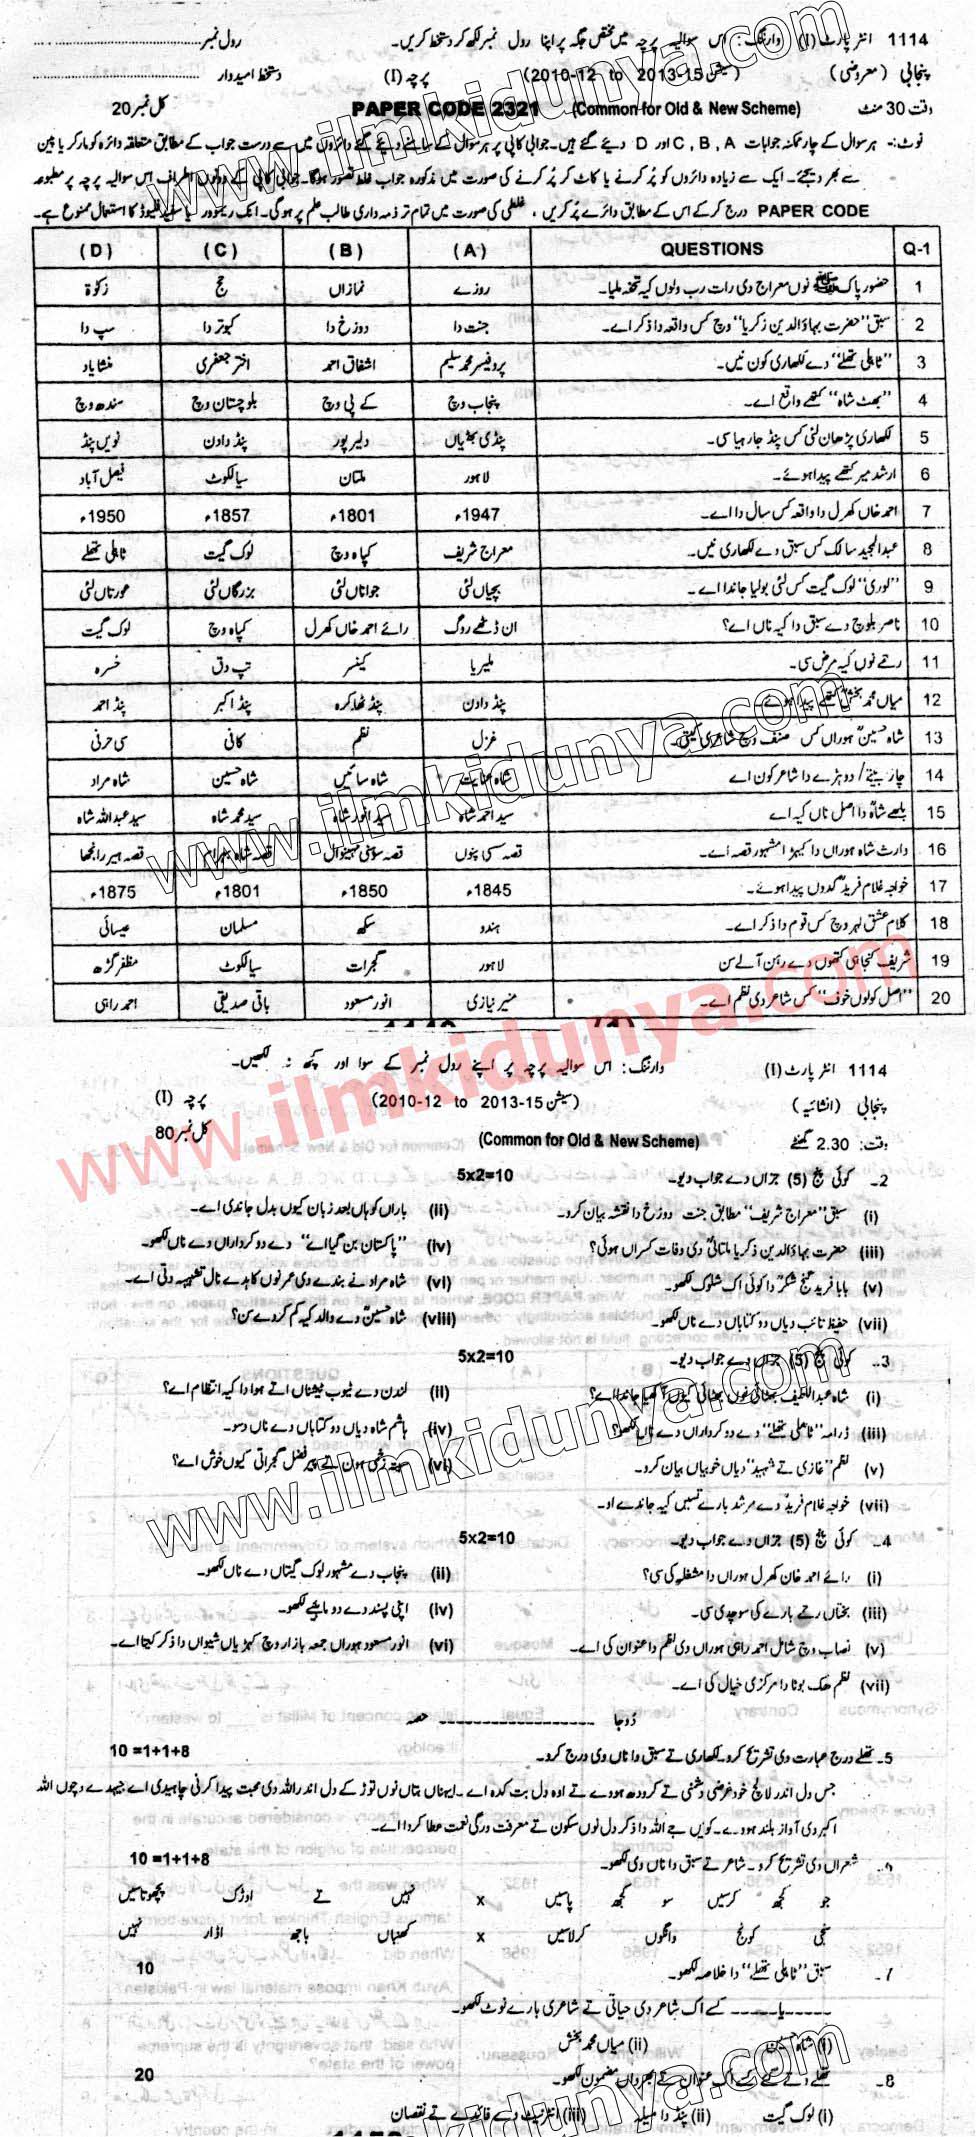 1114 انٹر پارٹ (I) وارننگ: اس سوالیہ پرچہ میں مختص جگہ پر اپنا رول نمبر لکھ کر دستخط کریں۔ رول نمبر
پنجابی (معروضی) (سیشن 2010-12 to 2013-15) پرچہ (I) دستخط امیدوار
وقت 30 منٹ (Common for Old & New Scheme) PAPER CODE 2321 کل نمبر 20
نوٹ:- ہر سوال کے چار ممکنہ جوابات A ,B ,C اور D دیئے گئے ہیں۔ جوابی کاپی پر ہر سوال کے سامنے دیئے گئے دائروں میں سے درست جواب کے مطابق متعلقہ دائرہ کو مارکر یا پین
سے بھر دیجئے۔ ایک سے زیادہ دائروں کو پُر کرنے یا کاٹ کر پُر کرنے کی صورت میں مذکورہ جواب غلط تصور ہوگا۔ جوابی کاپی کے دونوں اطراف اس سوالیہ پرچہ پر مطبوعہ
PAPER CODE درج کر کے اس کے مطابق دائرے پُر کریں، غلطی کی صورت میں تمام تر ذمہ داری طالب علم پر ہوگی۔ انک ریموور یا سفید فلیوڈ کا استعمال ممنوع ہے۔
Q-1 QUESTIONS (A) (B) (C) (D)
1 حضور پاک ﷺ نوں معراج دی رات رب ولوں کیہ تحفہ ملیا۔ روزے نمازاں حج زکوٰۃ
2 سبق "حضرت بہاؤالدین زکریا" وچ کس واقعہ دا ذکر اے۔ جنت دا دوزخ دا کبوتر دا سپ دا
3 "ٹاہلی تھلے" دے لکھاری کون نیں۔ پروفیسر محمد سلیم اشفاق احمد اختر جعفری منشا یاد
4 "بھٹ شاہ" کتھے واقع اے۔ پنجاب وچ کے پی وچ بلوچستان وچ سندھ وچ
5 لکھاری پڑھان لئی کس پنڈ جا رہیا سی۔ پنڈی بھٹیاں دلیر پور پنڈ دادن نویں پنڈ
6 ارشد میر کتھے پیدا ہوئے۔ لاہور ملتان سیالکوٹ فیصل آباد
7 احمد خاں کھرل دا واقعہ کس سال دا اے۔ 1947ء 1801ء 1857ء 1950ء
8 عبدالمجید سالک کس سبق دے لکھاری نیں۔ معراج شریف کپاہ وچ لوک گیت ٹاہلی تھلے
9 "لوری" لوک گیت کس لئی بولیا جاندا اے۔ بچیاں لئی جواناں لئی بزرگاں لئی عورتاں لئی
10 ناصر بلوچ دے سبق دا کیہ ناں اے؟ ان ڈٹھے روگ رائے احمد خاں کھرل کپاہ وچ لوک گیت
11 رتے نوں کیہ مرض سی۔ ملیریا کینسر تپ دق خسرہ
12 میاں محمد بخشؒ کتھے پیدا ہوئے پنڈ دادن پنڈ ٹھاکرہ پنڈ اکبر پنڈ احمد
13 شاہ حسینؒ ہوراں کس صنف وچ شاعری کیتی۔ غزل نظم کافی سی حرفی
14 چار بیتے/ دوہڑے دا شاعر کون اے شاہ عنایت شاہ سائیں شاہ حسین شاہ مراد
15 بلھے شاہؒ دا اصل ناں کیہ اے سید احمد شاہ سید انور شاہ سید محمد شاہ سید عبداللہ شاہ
16 وارث شاہ ہوراں دا کیہڑا مشہور قصہ اے۔ قصہ سسی پنوں قصہ سوہنی مہینوال قصہ شاہ بہرام قصہ ہیر رانجھا
17 خواجہ غلام فریدؒ کدوں پیدا ہوئے۔ 1845ء 1850ء 1801ء 1875ء
18 کلام عشق لہر وچ کس قوم دا ذکر اے۔ ہندو سکھ مسلمان عیسائی
19 شریف کنجاہی کتھوں دے رہن آلے سن لاہور گجرات سیالکوٹ مظفر گڑھ
20 "اصل کولوں خوف" کس شاعر دی نظم اے۔ منیر نیازی انور مسعود باقی صدیقی احمد راہی
1114 انٹر پارٹ (I) وارننگ: اس سوالیہ پرچہ پر اپنے رول نمبر کے سوا اور کچھ نہ لکھیں۔
پنجابی (انشائیہ) (سیشن 2010-12 to 2013-15) پرچہ (I)
وقت: 2.30 گھنٹے (Common for Old & New Scheme) کل نمبر 80
2۔ کوئی پنج (5) جزاں دے جواب دیو۔ 5x2=10
(i) سبق "معراج شریف" مطابق جنت دوزخ دا نقشہ بیان کرو۔ (ii) باراں کوہاں بعد زبان کیوں بدل جاندی اے۔
(iii) حضرت بہاؤالدین زکریا ملتانیؒ دی وفات کسراں ہوئی؟ (iv) "پاکستان بن گیا اے" دے دو کرداراں دے ناں لکھو۔
(v) بابا فرید گنج شکرؒ دا کوئی اک شلوک لکھو۔ (vi) شاہ مراد نے بندے دی عمر نوں کاہدے نال تشبیہہ دتی اے۔
(vii) حفیظ تائب دیاں دو کتاباں دے ناں لکھو۔ (viii) شاہ حسینؒ دے والد کیہ کم کردے سن؟
3۔ کوئی پنج (5) جزاں دے جواب دیو۔ 5x2=10
(i) شاہ عبداللطیف بھٹائی نوں بھٹائی کیوں آکھیا جاندا اے؟ (ii) لندن دے ٹیوب ٹیشناں اتے ہوا دا کیہ انتظام اے؟
(iii) ڈرامہ "ٹاہلی تھلے" دے دو کرداراں دے ناں لکھو؟ (iv) ہاشم شاہ دیاں دو کتاباں دے ناں دسو۔
(v) نظم "غازی تے شہید" دیاں خوبیاں بیان کرو۔ (vi) زخمی ہون تے پیر فضل گجراتی کیوں خوش اے؟
(vii) خواجہ غلام فریدؒ دے مرشد بارے تسیں کیہ جاندے او۔
4۔ کوئی پنج (5) جزاں دے جواب دیو۔ 5x2=10
(i) رائے احمد خان کھرل ہوراں دا مشغلہ کی سی؟ (ii) پنجاب دے مشہور لوک گیتاں دے ناں لکھو۔
(iii) بختاں رتے بارے کی سوچدی سی۔ (iv) اپنی پسند دے دو ماہیے لکھو۔
(v) نصاب وچ شامل احمد راہی ہوراں دی نظم دا عنوان کی اے۔ (vi) انور مسعود ہوراں جمعہ بازار وچ کیہڑیاں شیواں دا ذکر کیتا اے۔
(vii) نظم ہک بوٹا دا مرکزی خیال کی اے۔
دوجا حصہ
5۔ تھلے درج عبارت دی تشریح کرو۔ لکھاری تے سبق دا ناں وی درج کرو۔ 10 =1+1+8
جس دل اندر لالچ خود غرضی دشمنی تے کرودھ ہووے تے اوہ دل بت کدہ اے۔ ایہناں بتاں نوں توڑ کے دل اندر اللہ دی محبت پیدا کرنی چاہیدی اے جیہدے وچوں اللہ
اکبر دی آواز بلند ہووے۔ کویں جے اللہ دا ذکر دل نوں سکون تے معرفت ورگی نعمت عطا کردا اے۔
شعراں دی تشریح کرو۔ شاعر تے سبق دا ناں وی لکھو۔ 10 =1+1+8
جو کجھ کرسیں سو کجھ پاسیں x نہیں تے اوڑک پچھوتاسیں
سنجی کونج وانگوں کرلاسیں x کھنباں باجھ اڈار نہیں
7۔ سبق "ٹاہلی تھلے" دا خلاصہ لکھو۔ 10
-----یا----- کسے اک شاعر دی حیاتی تے شاعری بارے نوٹ لکھو۔
(i) شاہ حسینؒ (ii) میاں محمد بخش
8۔ تھلے دتے گئے کسے اک عنوان تے بھرواں مضمون لکھو۔ 20
(i) لوک گیت (ii) پنڈ دا میلہ (iii) انٹرنیٹ دے فائدے تے نقصان
www.ilmkidunya.com
www.ilmkidunya.com
www.ilmkidunya.com
www.ilmkidunya.com